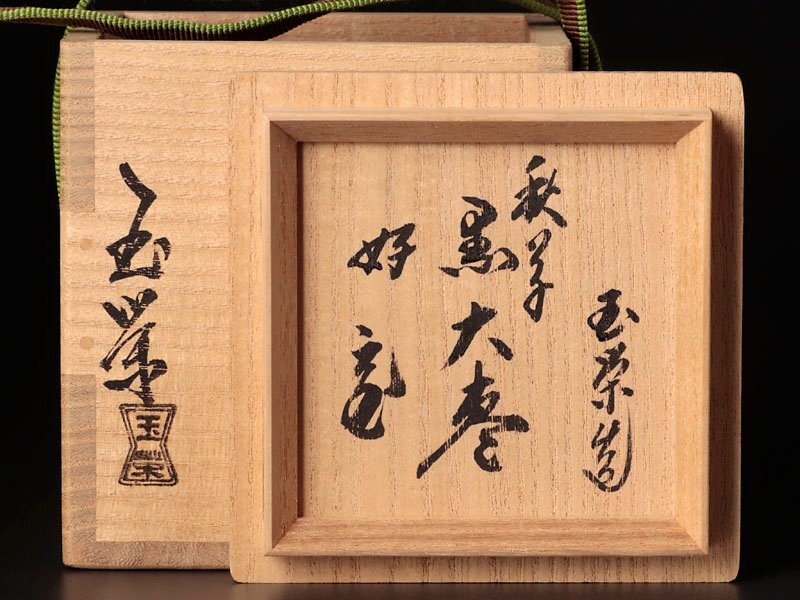 玉栄造
秋草
黒大棗
好
玉栄
玉栄